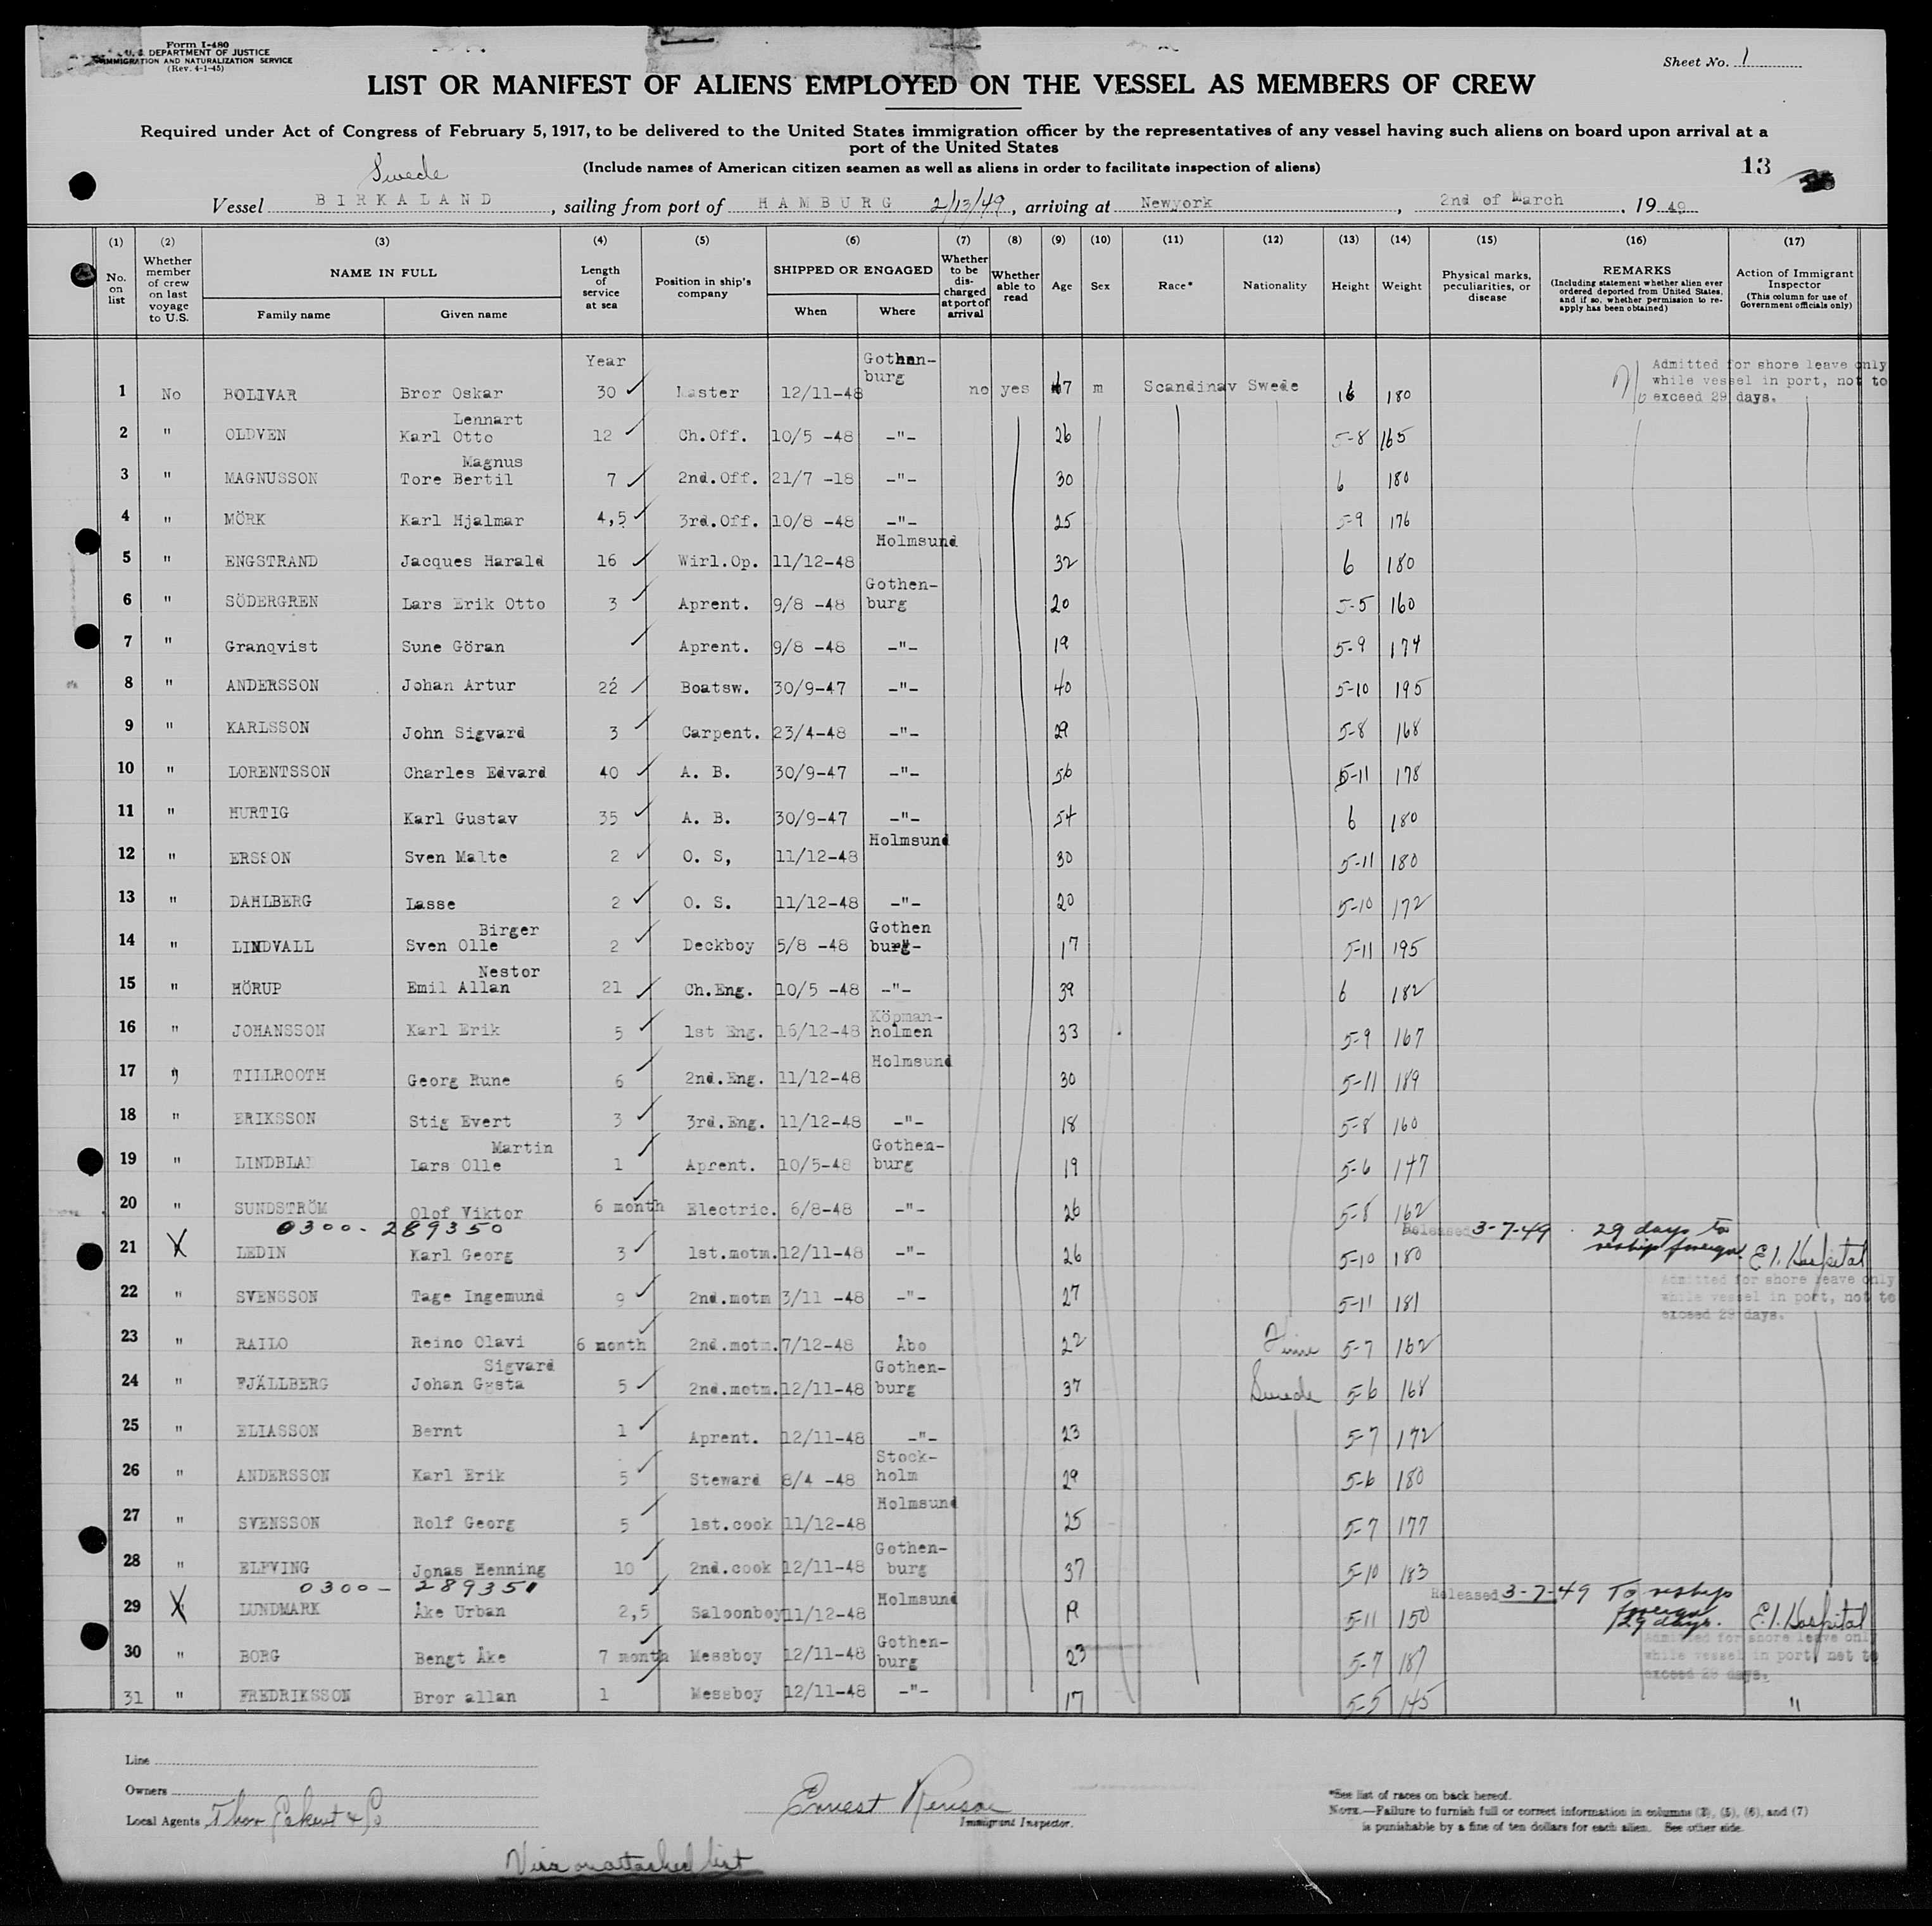 Form I-480
U. S. DEPARTMENT OF JUSTICE
IMMIGRATION AND NATURALIZATION SERVICE
(Rev. 4-1-45)
Sheet No. 1
LIST OR MANIFEST OF ALIENS EMPLOYED ON THE VESSEL AS MEMBERS OF CREW
Required under Act of Congress of February 5, 1917, to be delivered to the United States immigration officer by the representatives of any vessel having such aliens on board upon arrival at a
port of the United States
(Include names of American citizen seamen as well as aliens in order to facilitate inspection of aliens)
13
Swede
Vessel BIRKALAND, sailing from port of HAMBURG 2/13/49, arriving at Newyork, 2nd of March, 19 49
(1) (2) (3) (4) (5) (6) (7) (8) (9) (10) (11) (12) (13) (14) (15) (16) (17)
No. on list
Whether member of crew on last voyage to U.S.
NAME IN FULL
Family name
Given name
Length of service at sea
Position in ship's company
SHIPPED OR ENGAGED
When
Where
Whether to be discharged at port of arrival
Whether able to read
Age
Sex
Race*
Nationality
Height
Weight
Physical marks, peculiarities, or disease
REMARKS
(Including statement whether alien ever ordered deported from United States, and if so, whether permission to re-apply has been obtained)
Action of Immigrant Inspector
(This column for use of Government officials only)
Year
1 No BOLIVAR Bror Oskar 30 ✓ Master 12/11-48 Gothen-burg no yes 7 m Scandinav Swede 6 180 Admitted for shore leave only while vessel in port, not to exceed 29 days.
2 " OLDVEN Karl Otto Lennart 12 ✓ Ch.Off. 10/5 -48 -"- 26 5-8 165
3 " MAGNUSSON Tore Bertil Magnus 7 ✓ 2nd.Off. 21/7 -18 -"- 30 6 180
4 " MÖRK Karl Hjalmar 4,5 ✓ 3rd.Off. 10/8 -48 -"- 25 5-9 176
5 " ENGSTRAND Jacques Harald 16 ✓ Wirl.Op. 11/12-48 Holmsund 32 6 180
6 " SÖDERGREN Lars Erik Otto 3 ✓ Aprent. 9/8 -48 Gothen-burg 20 5-5 160
7 " Granqvist Sune Göran ✓ Aprent. 9/8 -48 -"- 19 5-9 174
8 " ANDERSSON Johan Artur 22 ✓ Boatsw. 30/9-47 -"- 40 5-10 195
9 " KARLSSON John Sigvard 3 ✓ Carpent. 23/4-48 -"- 29 5-8 168
10 " LORENTSSON Charles Edvard 40 ✓ A. B. 30/9-47 -"- 56 5-11 178
11 " HURTIG Karl Gustav 35 ✓ A. B. 30/9-47 -"- 54 6 180
12 " ERSSON Sven Malte 2 ✓ O. S, 11/12-48 Holmsund 30 5-11 180
13 " DAHLBERG Lasse 2 ✓ O. S. 11/12-48 -"- 20 5-10 172
14 " LINDVALL Sven Olle Birger 2 ✓ Deckboy 5/8 -48 Gothen burg- 17 5-11 195
15 " HÖRUP Emil Allan Nestor 21 ✓ Ch.Eng. 10/5 -48 -"- 39 6 182
16 " JOHANSSON Karl Erik 5 ✓ 1st Eng. 16/12-48 Köpman-holmen 33 5-9 167
17 " TILLROOTH Georg Rune 6 ✓ 2nd.Eng. 11/12-48 Holmsund 30 5-11 189
18 " ERIKSSON Stig Evert 3 ✓ 3rd.Eng. 11/12-48 -"- 18 5-8 160
19 " LINDBLA Lars Olle Martin 1 ✓ Aprent. 10/5-48 Gothen-burg 19 5-6 147
20 " SUNDSTRÖM Olof Viktor 6 month ✓ Electric. 6/8-48 -"- 26 5-8 162
0300-289350
21 X LEDIN Karl Georg 3 ✓ 1st.motm. 12/11-48 -"- 26 5-10 180 Released 3-7-49 29 days to reship foreign. E.I. Hospital
22 " SVENSSON Tage Ingemund 9 ✓ 2nd.motm 3/11 -48 -"- 27 5-11 181 Admitted for shore leave only while vessel in port, not to exceed 29 days.
23 " RAILO Reino Olavi 6 month ✓ 2nd.motm. 7/12-48 Åbo 22 Finn 5-7 162
24 " FJÄLLBERG Johan Gøsta Sigvard 5 ✓ 2nd.motm. 12/11-48 Gothen-burg 37 Swede 5-6 168
25 " ELIASSON Bernt 1 ✓ Aprent. 12/11-48 -"- 23 5-7 172
26 " ANDERSSON Karl Erik 5 ✓ Steward 8/4 -48 Stock-holm 29 5-6 180
27 " SVENSSON Rolf Georg 5 ✓ 1st.cook 11/12-48 Holmsund 25 5-7 177
28 " ELFVING Jonas Henning 10 ✓ 2nd.cook 12/11-48 Gothen-burg 37 5-10 183
0300-289351
29 X LUNDMARK Åke Urban 2,5 ✓ Saloonboy 11/12-48 Holmsund 19 5-11 150 Released 3-7-49 To reship foreign 29 days. E.I. Hospital
30 " BORG Bengt Åke 7 month ✓ Messboy 12/11-48 Gothen-burg 23 5-7 187 Admitted for shore leave only while vessel in port, not to exceed 29 days.
31 " FREDRIKSSON Bror allan 1 ✓ Messboy 12/11-48 -"- 17 5-5 145 "
Line
Owners
Local Agents Thor Eckert & Co
Ernest
Immigrant Inspector.
*See list of races on back hereof.
NOTE.—Failure to furnish full or correct information in columns (3), (5), (6), and (7)
is punishable by a fine of ten dollars for each alien. See other side.
Visa on attached list